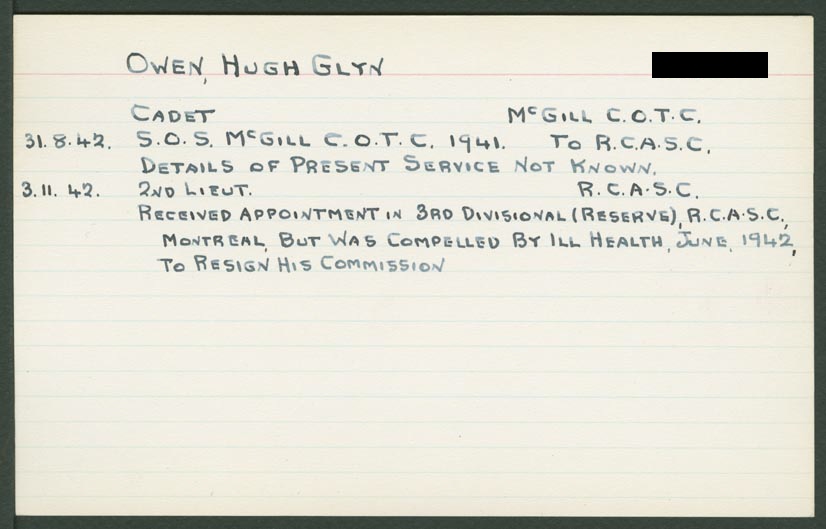 OWEN, HUGH GLYN
CADET McGILL C.O.T.C.
31.8.42. S.O.S. McGILL C.O.T.C. 1941. TO R.C.A.S.C.
DETAILS OF PRESENT SERVICE NOT KNOWN.
3.11.42. 2ND LIEUT. R.C.A.S.C.
RECEIVED APPOINTMENT IN 3RD DIVISIONAL (RESERVE), R.C.A.S.C.,
MONTREAL, BUT WAS COMPELLED BY ILL HEALTH, JUNE, 1942,
TO RESIGN HIS COMMISSION